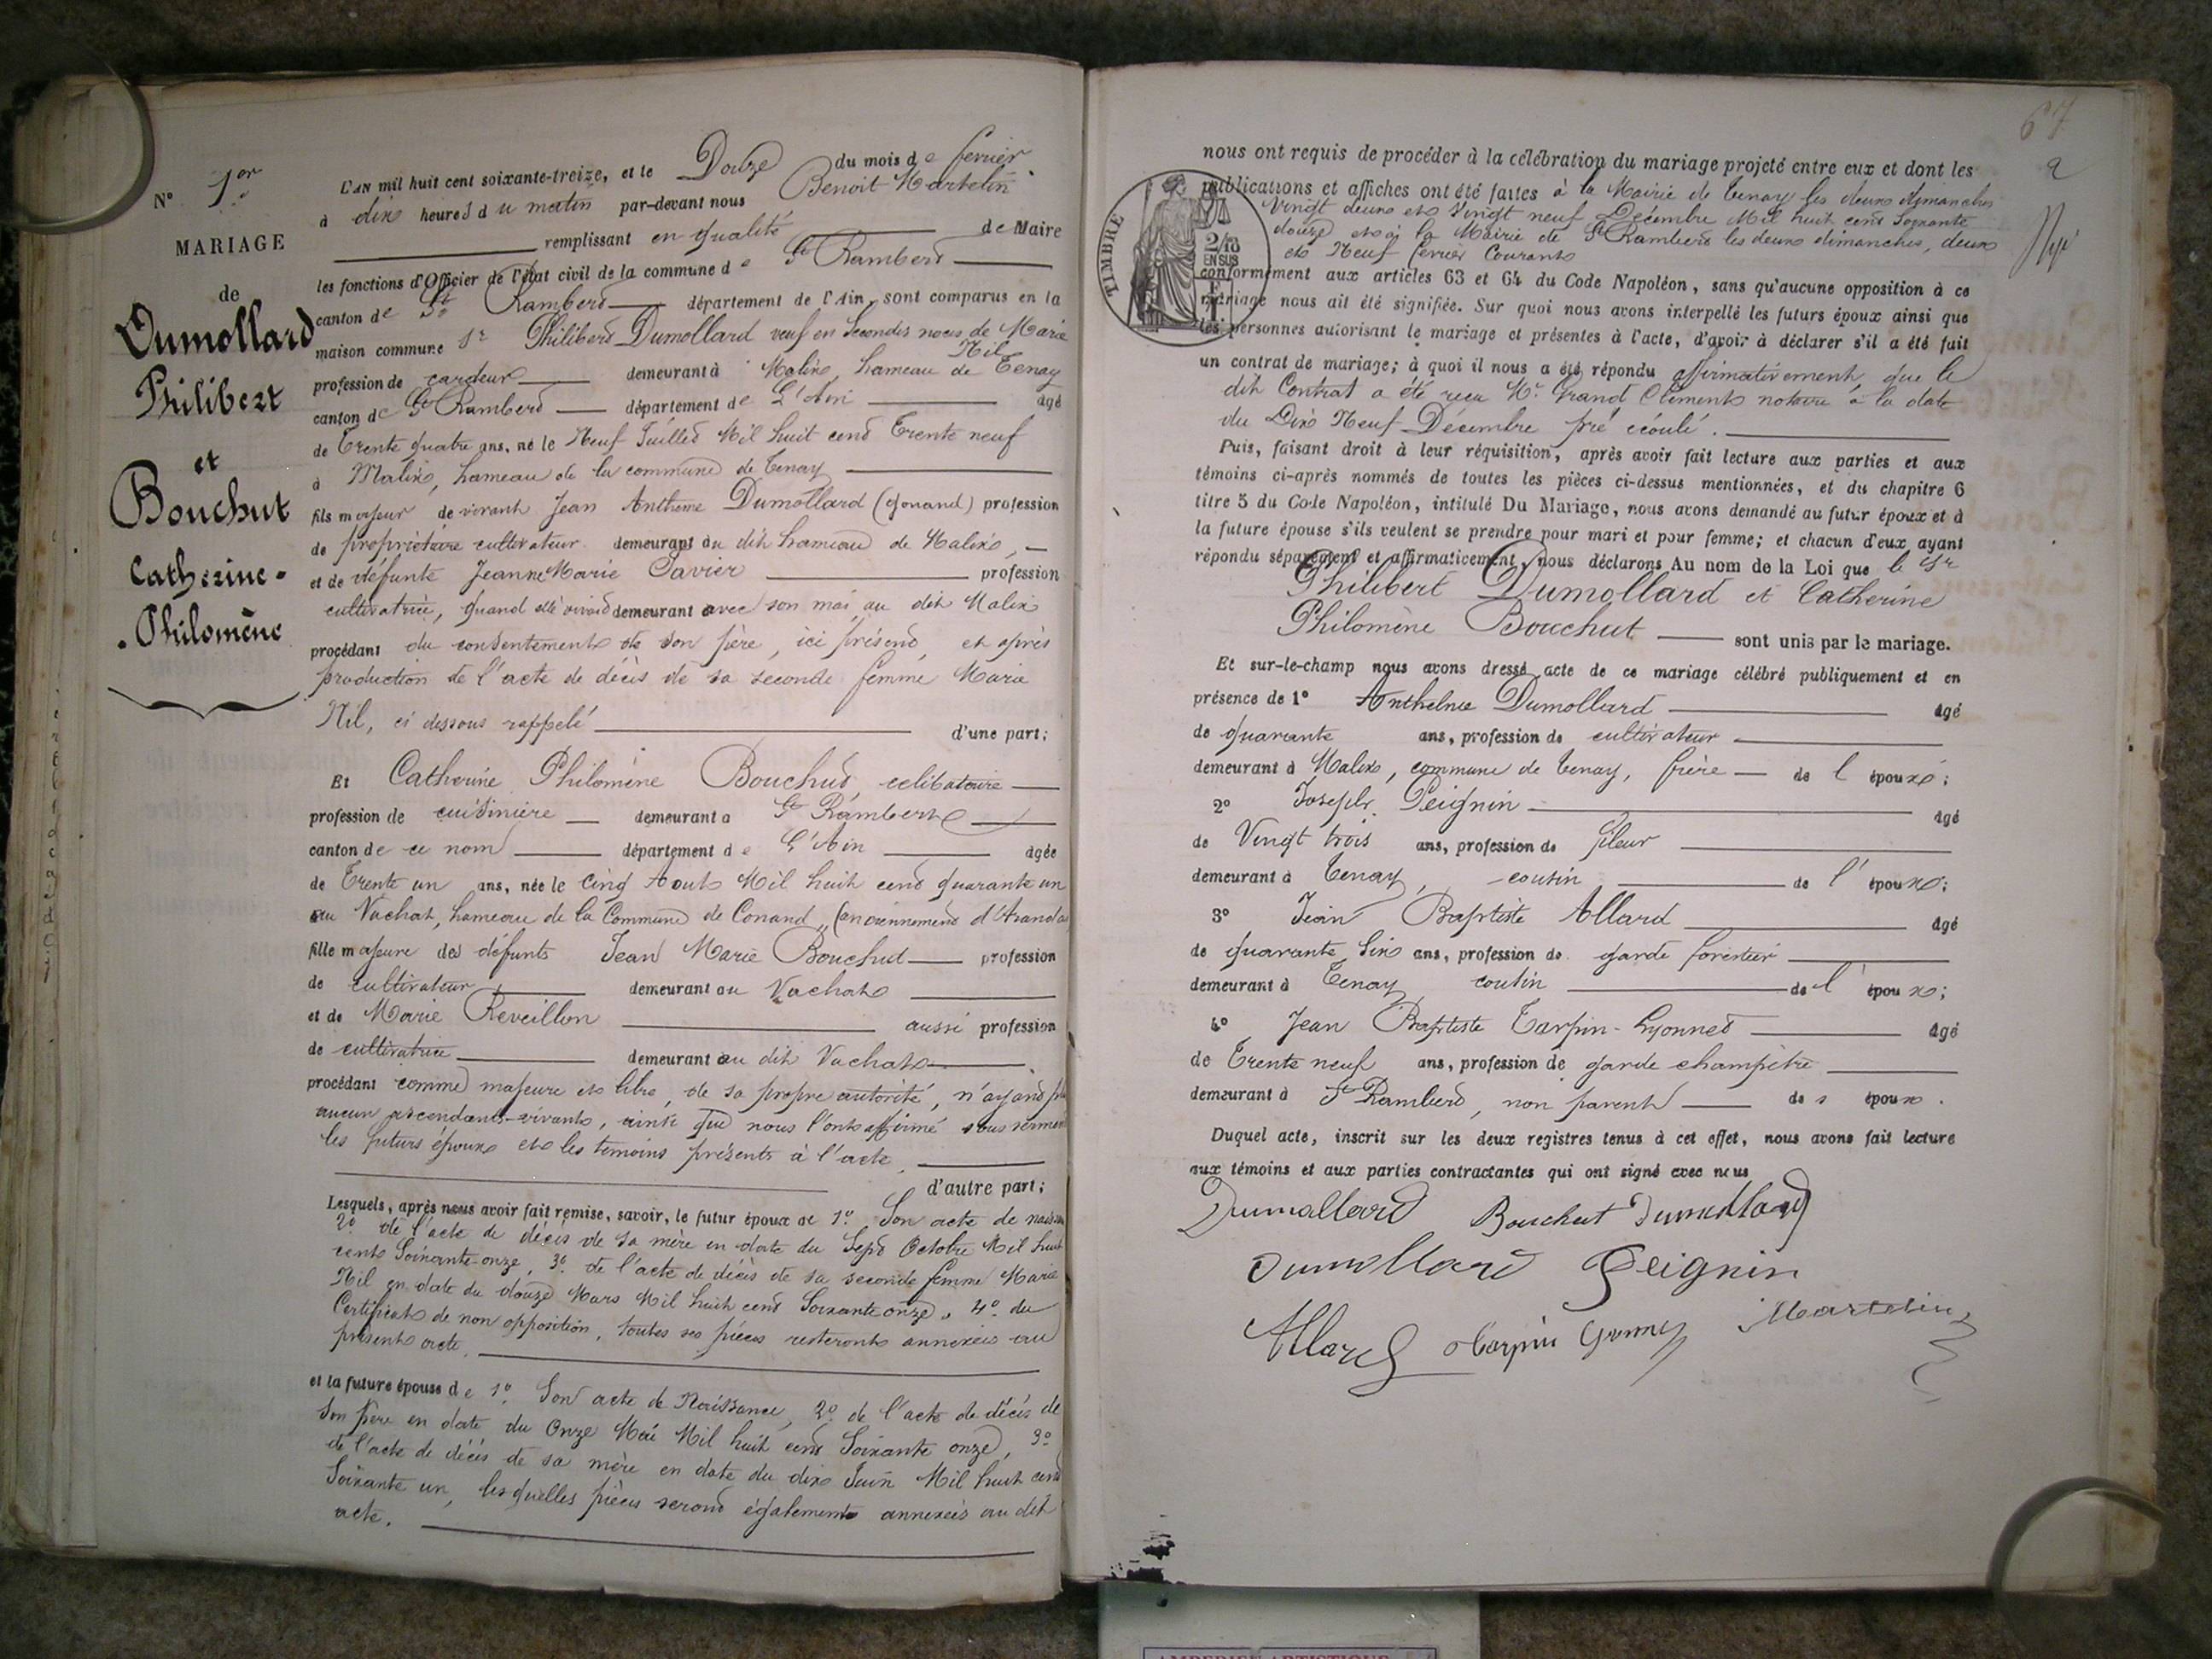 N° 1er
MARIAGE
de
Dumollard
Philibert
et
Bouchut
Catherine-
Philomène
L'AN mil huit cent soixante-treize, et le Douze du mois de fevrier
à dix heures du matin par-devant nous Benoit Martelin
remplissant en qualité de Maire
les fonctions d'Officier de l'état civil de la commune de St Rambert
canton de St Rambert département de l'Ain, sont comparus en la
maison commune Sr Philibert Dumollard veuf en secondes noces de Marie
Nil
profession de cardeur demeurant à Malix, hameau de Tenay
canton de St Rambert département de L'Ain âgé
de Trente quatre ans, né le Neuf Juillet Mil huit cent Trente neuf
à Malix, hameau de la commune de Tenay
fils majeur de vivant Jean Anthelme Dumollard (gonand) profession
de propriétaire cultivateur demeurant au dit hameau de Malix,
et de défunte Jeanne Marie Savier profession
cultivatrice, quand elle vivait demeurant avec son mai au dit Malix
procédant du consentement de son père, ici présent, et après
production de l'acte de décès de sa seconde femme Marie
Nil, ci dessous rappelé d'une part;
Et Catherine Philomène Bouchut, célibataire
profession de cuisinière demeurant à St Rambert
canton de ce nom département de L'Ain âgée
de Trente un ans, née le cinq Août Mil huit cent quarante un
au Vachat, hameau de la Commune de Conand, (anciennement d'Arandas
fille majeure des défunts Jean Marie Bouchut profession
de cultivateur demeurant au Vachat
et de Marie Reveillon aussi profession
de cultivatrice demeurant au dit Vachat
procédant comme majeure et libre, de sa propre autorité, n'ayant plus
aucun ascendants vivants, ainsi que nous l'ont affirmé sous serment
les futurs époux et les temoins présents à l'acte,
d'autre part;
Lesquels, après nous avoir fait remise, savoir, le futur époux de 1° Son acte de naissan
2° de l'acte de décès de sa mère en date du Sept Octobre Mil huit
cent Soixante-onze, 3° de l'acte de décès de sa seconde femme Marie
Nil en date du douze Mars Mil huit cent Soixante onze, 4° du
Certificat de non opposition, toutes ses pièces resteront annexées au
présent acte.
et la future épouse de 1° Son acte de Naissance, 2° de l'acte de décès de
Son père en date du Onze Mai Mil huit cent Soixante onze, 3°
de l'acte de décès de sa mère en date du dix Juin Mil huit cent
Soixante un, lesquelles pièces seront également annexées au dit
acte.
67
2
TIMBRE
2/10
EN SUS
nous ont requis de procéder à la célébration du mariage projeté entre eux et dont les
publications et affiches ont été faites à la Mairie de Tenay les deux dimanches
Vingt deux et Vingt neuf Décembre Mil huit cent Soixante
douze et à la Mairie de St Rambert les deux dimanches, deux
et Neuf fevrier Courant
conformément aux articles 63 et 64 du Code Napoléon, sans qu'aucune opposition à ce
mariage nous ait été signifiée. Sur quoi nous avons interpellé les futurs époux ainsi que
les personnes autorisant le mariage et présentes à l'acte, d'avoir à déclarer s'il a été fait
un contrat de mariage; à quoi il nous a été répondu affirmativement, que le
dit Contrat a été reçu Mr Grand Clément notaire à la date
du Dix Neuf Décembre pré écoulé.
Puis, faisant droit à leur réquisition, après avoir fait lecture aux parties et aux
témoins ci-après nommés de toutes les pièces ci-dessus mentionnées, et du chapitre 6
titre 5 du Code Napoléon, intitulé Du Mariage, nous avons demandé au futur époux et à
la future épouse s'ils veulent se prendre pour mari et pour femme; et chacun d'eux ayant
répondu séparément et affirmativement, nous déclarons Au nom de la Loi que le Sr
Philibert Dumollard et Catherine
Philomène Bouchut sont unis par le mariage.
Et sur-le-champ nous avons dressé acte de ce mariage célébré publiquement et en
présence de 1° Anthelme Dumollard âgé
de quarante ans, profession de cultivateur
demeurant à Malix, commune de Tenay, frère de l'époux;
2° Joseph Peignin âgé
de Vingt trois ans, profession de fileur
demeurant à Tenay, cousin de l'époux;
3° Jean Baptiste Allard âgé
de quarante Six ans, profession de garde forestier
demeurant à Tenay cousin de l'époux;
4° Jean Baptiste Tarpin-Lyonnet âgé
de Trente neuf ans, profession de garde champêtre
demeurant à St Rambert, non parent des époux.
Duquel acte, inscrit sur les deux registres tenus à cet effet, nous avons fait lecture
aux témoins et aux parties contractantes qui ont signé avec nous
Dumollard Bouchut Dumollard
Dumollard Peignin
Allard Tarpin Martelin